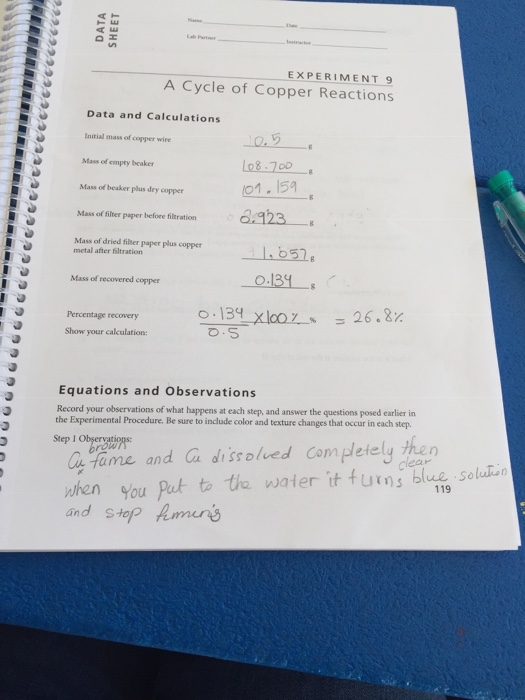 DATA
SHEET
Name
Date
Lab Partner
Instructor
EXPERIMENT 9
A Cycle of Copper Reactions
Data and Calculations
Initial mass of copper wire 0.5 g
Mass of empty beaker 108.700 g
Mass of beaker plus dry copper 101.159 g
Mass of filter paper before filtration 0.923 g
Mass of dried filter paper plus copper
metal after filtration 1.057 g
Mass of recovered copper 0.134 g
Percentage recovery 0.134 x100% % = 26.8%
Show your calculation: 0.5
Equations and Observations
Record your observations of what happens at each step, and answer the questions posed earlier in
the Experimental Procedure. Be sure to include color and texture changes that occur in each step.
Step 1 Observations:
brown
Cu fume and Cu dissolved completely then
clear
when you put to the water it turns blue solution
119
and stop